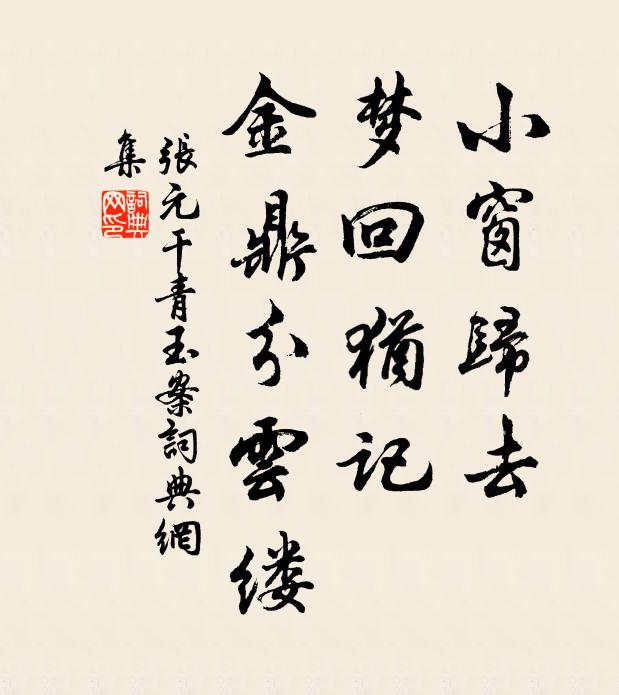 小窗歸去
梦回猶记
金鼎分雲缕
張元干青玉案詞典網
集
詞典
网印